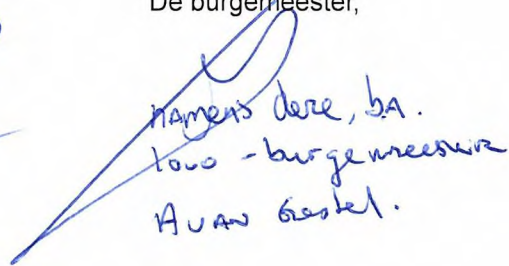 De burgemeester,
namens deze, b.a.
loco-burgemeester
A van Gestel.